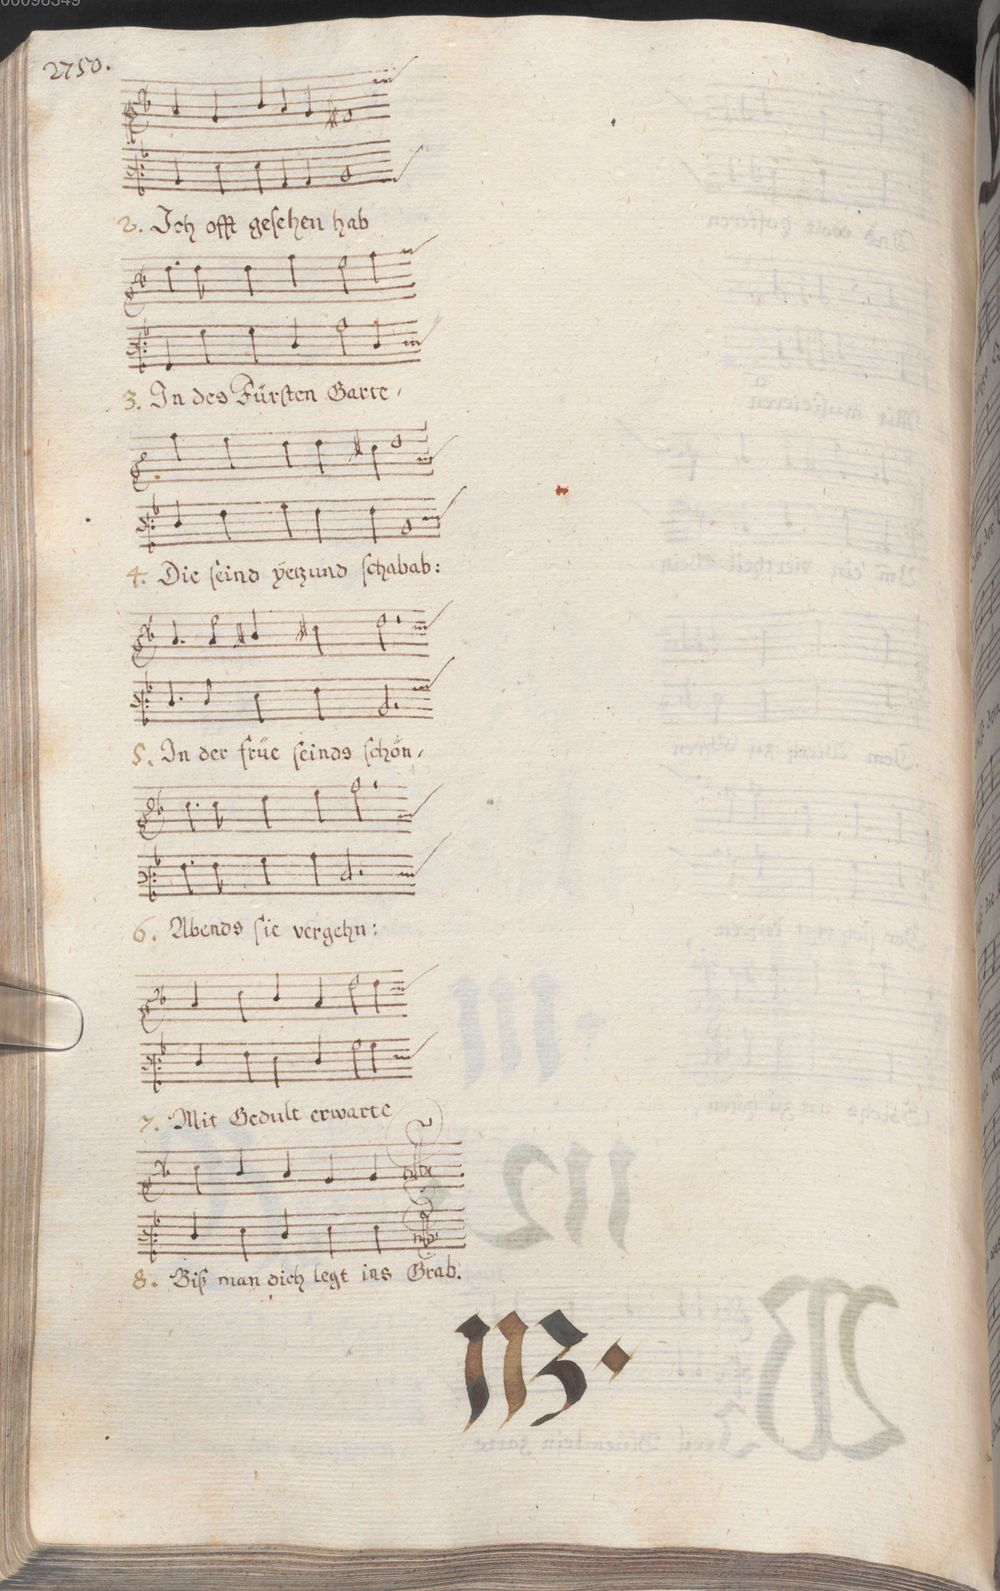 00096349
2750.
2. Ich offt gesehen hab
3. In des Fürsten Garte,
4. Die seind yetzund schabab:
5. In der früe seinds schön,
6. Abends sie vergehn:
7. Mit Gedult erwarte
8. Biß man dich legt ins Grab.
113.